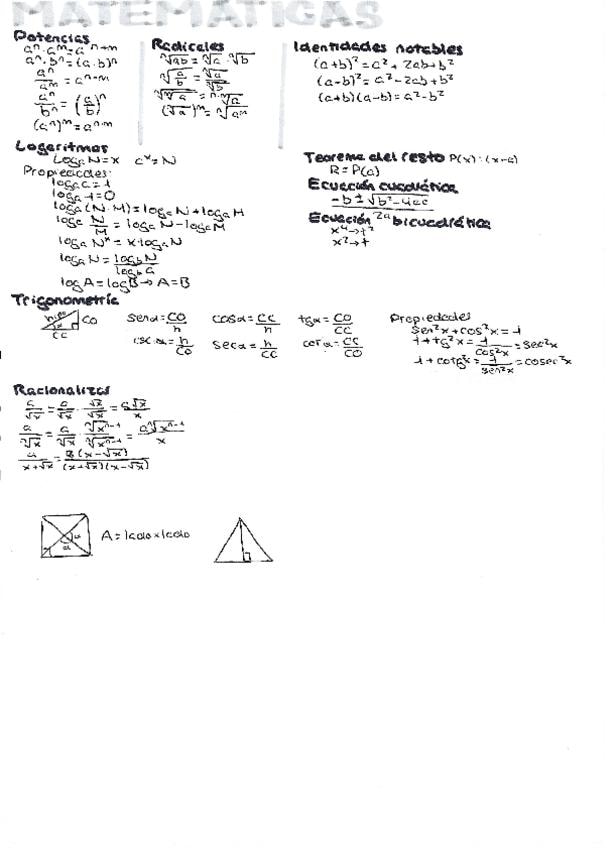 MATEMÁTICAS
Potencias
aⁿ·aᵐ=aⁿ⁺ᵐ
aⁿ·bⁿ=(a·b)ⁿ
aⁿ/aᵐ=aⁿ⁻ᵐ
aⁿ/bⁿ=(a/b)ⁿ
(aⁿ)ᵐ=aⁿ·ᵐ
Radicales
ⁿ√ab=ⁿ√a·ⁿ√b
ⁿ√(a/b)=ⁿ√a/ⁿ√b
(ⁿ√a)ᵐ=ⁿ√aᵐ
Identidades notables
(a+b)²=a²+2ab+b²
(a-b)²=a²-2ab+b²
(a+b)(a-b)=a²-b²
Logaritmos
LogₐN=x aˣ=N
Propiedades:
logₐa=1
logₐ1=0
logₐ(N·M)=logₐN+logₐM
logₐ N/M=logₐN-logₐM
logₐNˣ=x·logₐN
logₐN=log_bN/log_ba
logA=logB→A=B
Teorema del resto P(x):(x-a)
R=P(a)
Ecuación cuadrática
-b±√b²-4ac/2a
Ecuación bicuadrática
x⁴→t²
x²→t
Trigonometría
hipo
α
CO
CC
senα=CO/h cosα=CC/h tgα=CO/CC
cscα=h/CO secα=h/CC cotα=CC/CO
Propiedades
sen²x+cos²x=1
1+tg²x=1/cos²x=sec²x
1+cotg²x=1/sen²x=cosec²x
Racionalizar
a/√x=a/√x·√x/√x=a√x/x
a/ⁿ√x=a/ⁿ√x·ⁿ√xⁿ⁻¹/ⁿ√xⁿ⁻¹=aⁿ√xⁿ⁻¹/x
a/x+√x=a(x-√x)/(x+√x)(x-√x)
A=lado×lado